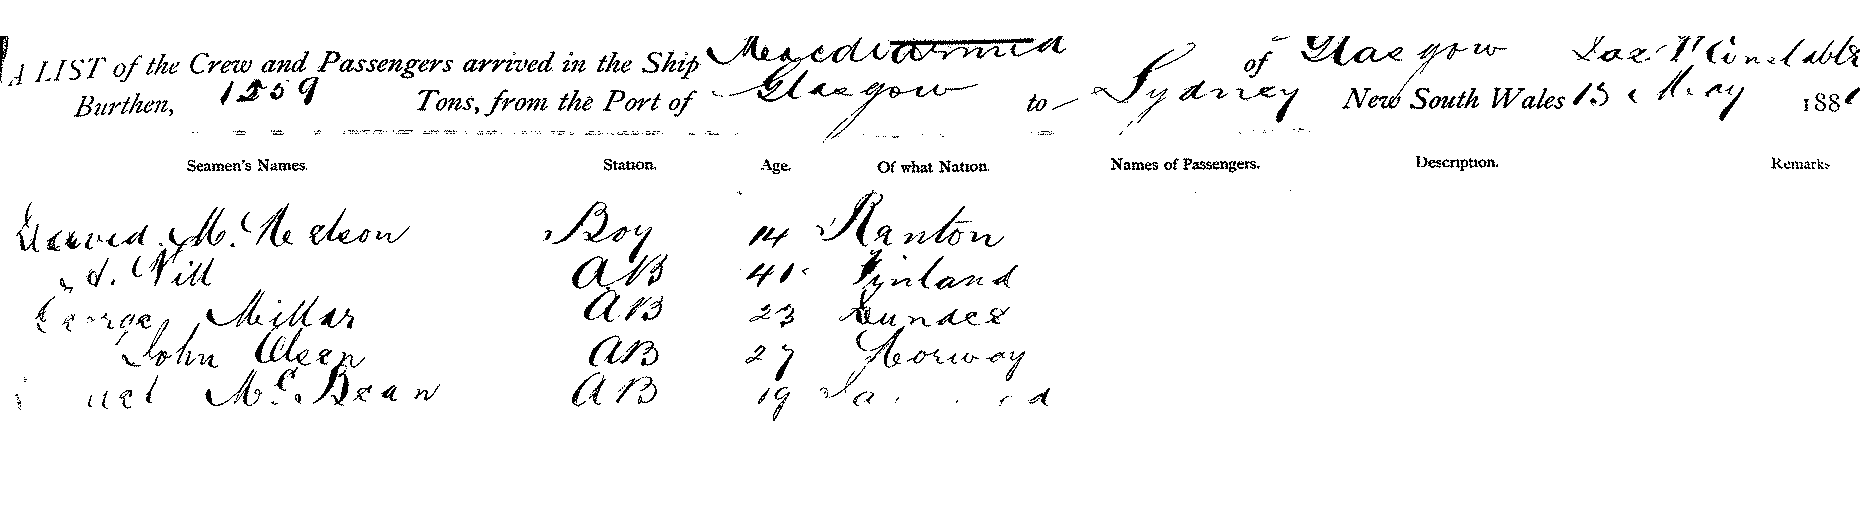 A LIST of the Crew and Passengers arrived in the Ship Macdiarmid of Glasgow
Burthen, 1259 Tons, from the Port of Glasgow to Sydney New South Wales 13 May 188
Seamen's Names. Station. Age. Of what Nation. Names of Passengers. Description. Remarks
M. Boy 14
Nill AB 41 Finland
George Millar AB 23 Dundee
John Olsen AB 27 Norway
McBean AB 19